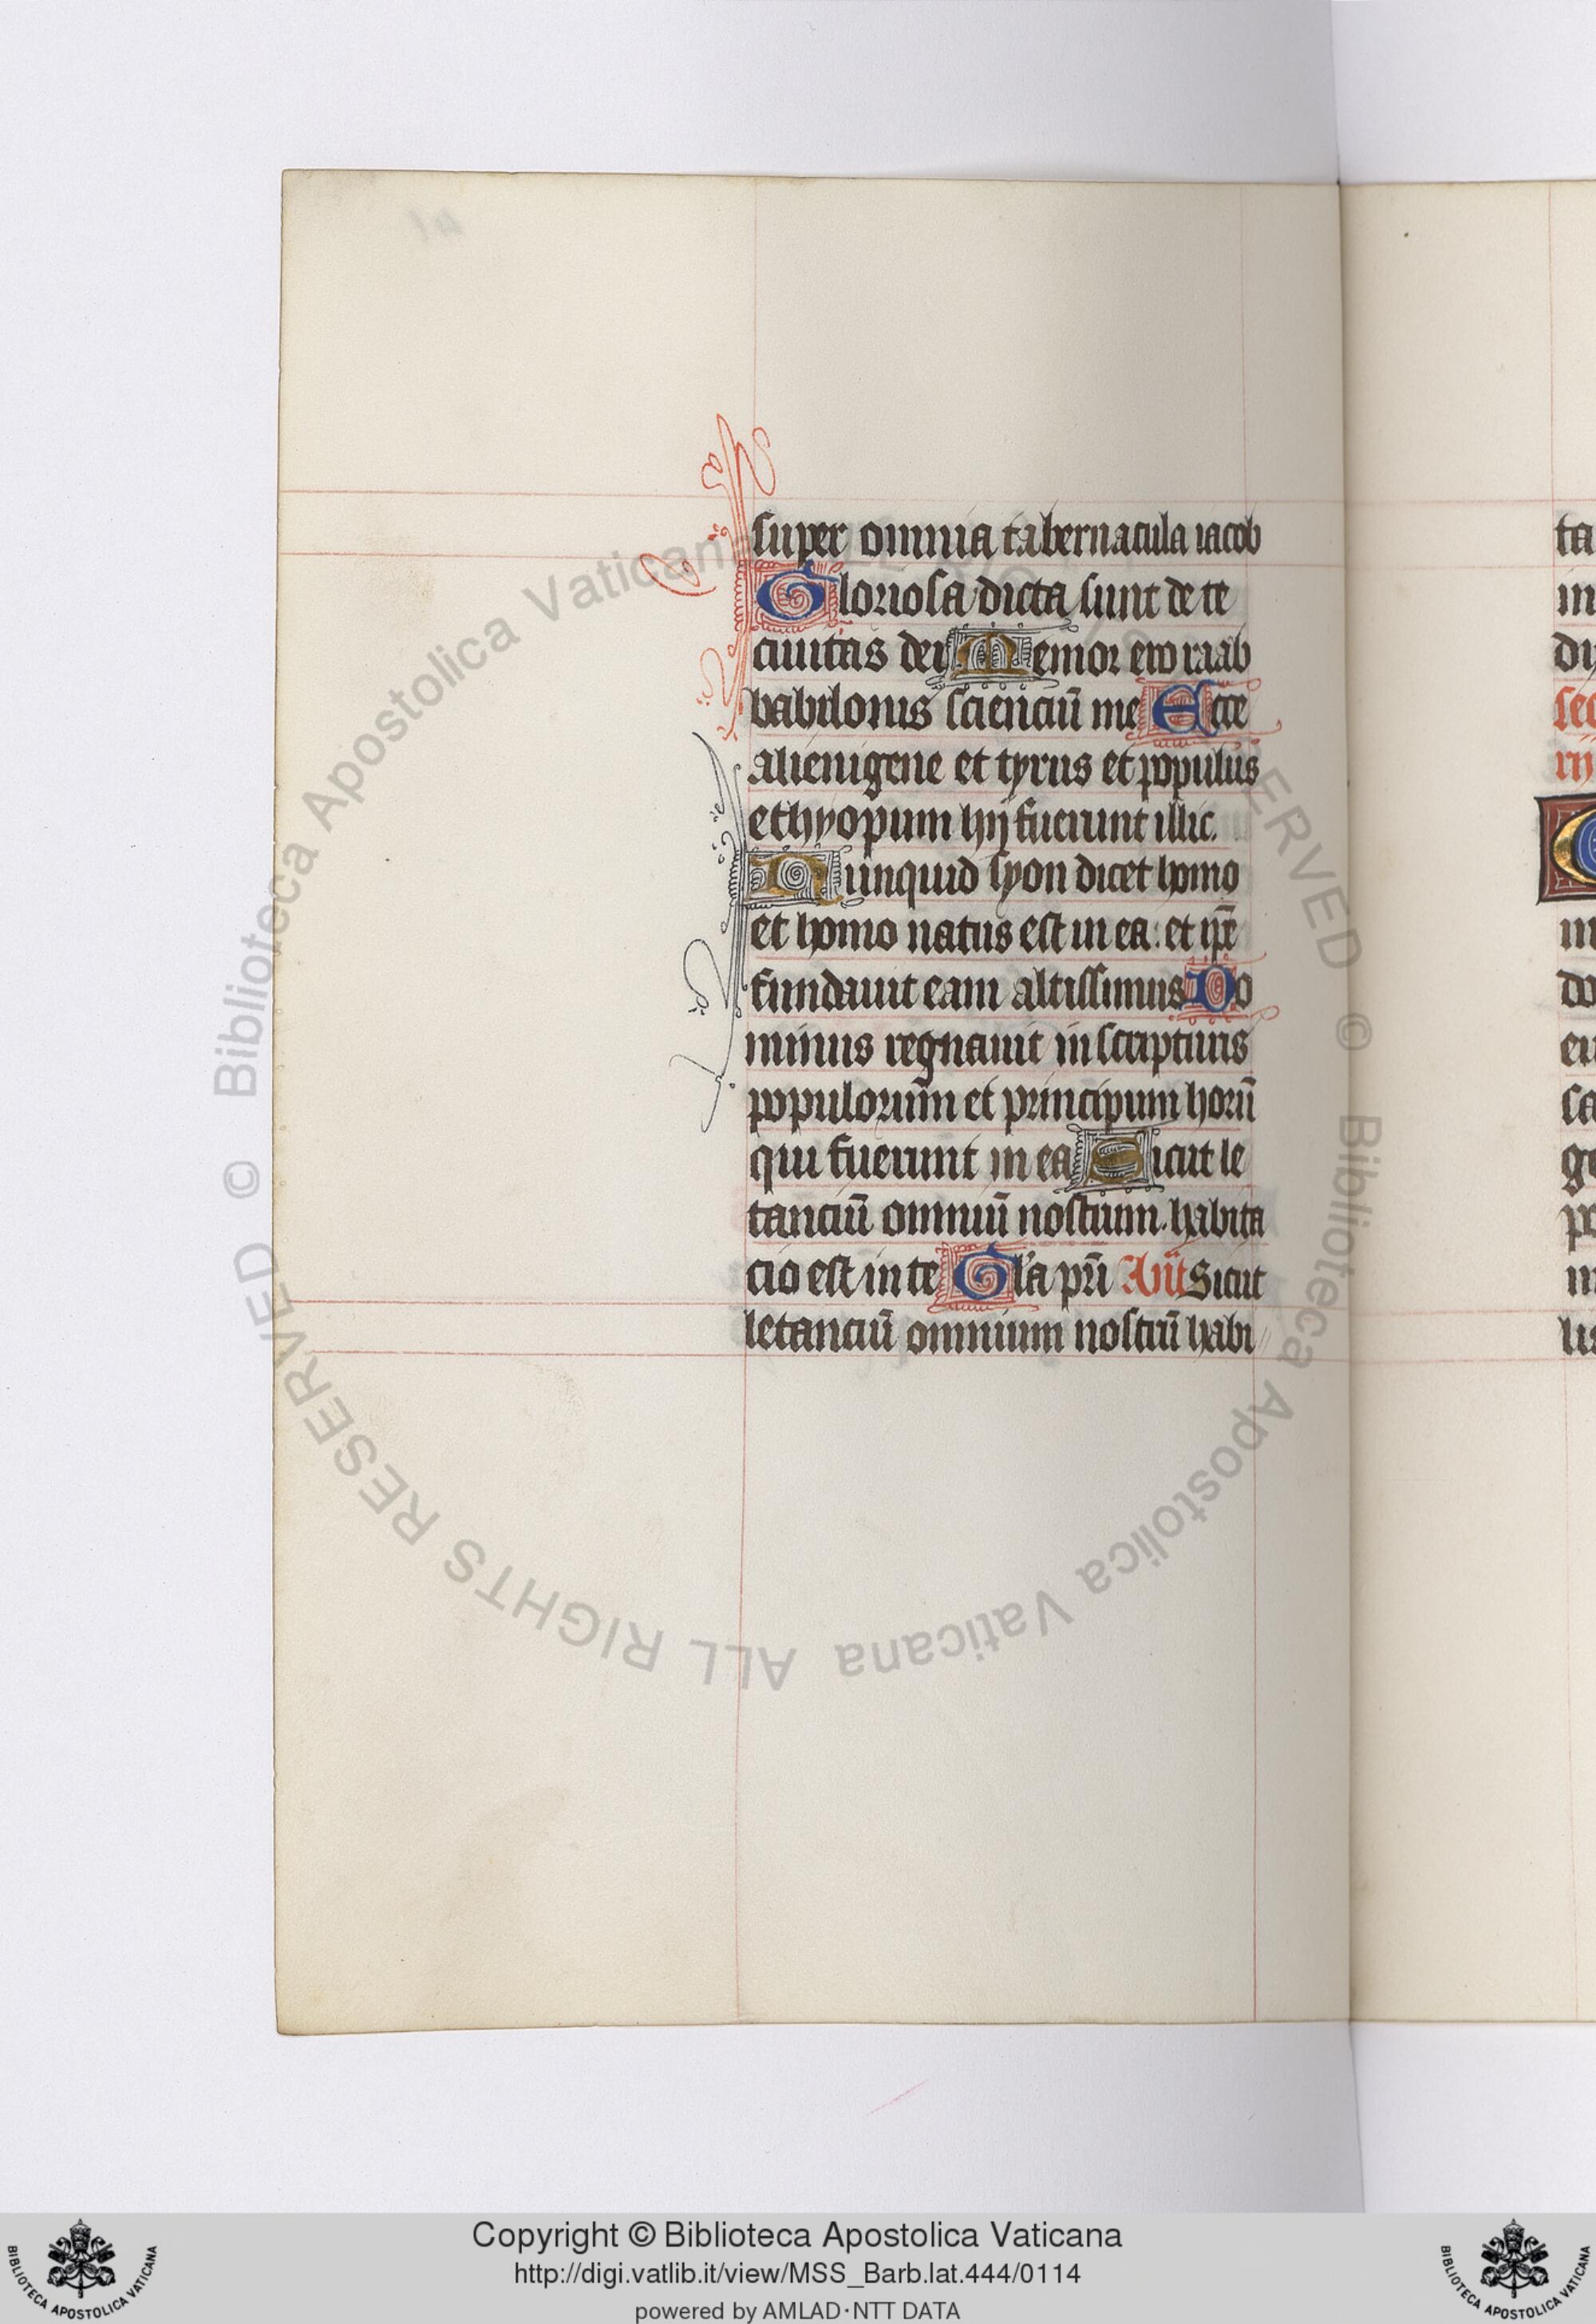 super omnia tabernacula iacob
Gloriosa dicta sunt de te
ciuitas dei Memor ero raab
babilonis scienciū me Ecce
alienigene et tyrus et populus
ethyopum hij fuerunt illic.
Nunquid syon dicet homo
et homo natus est in ea: et ip̄e
fundauit eam altissimus Do
minus regnauit in scripturis
populorum et principum horū
qui fuerunt in ea Sicut le
tanciū omniū nostrum habita
cio est in te Gl'a pr̄i Añ Sicut
letanciū omnium nostrū habi
ta
in
di
sec
rn
C
in
do
ei
sa
ge
po
in
lis
© Biblioteca Apostolica Vaticana ALL RIGHTS RESERVED © Biblioteca Apostolica Vaticana ALL RIGHTS RESERVED
Copyright © Biblioteca Apostolica Vaticana
http://digi.vatlib.it/view/MSS_Barb.lat.444/0114
powered by AMLAD·NTT DATA
BIBLIOTECA APOSTOLICA VATICANA
BIBLIOTECA APOSTOLICA VATICANA